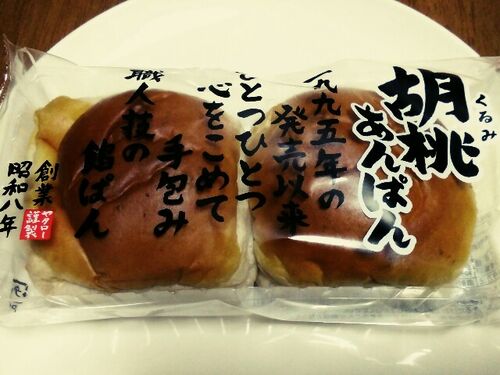 胡桃
くるみ
あんぱん
一九九五年の
発売以来
ひとつひとつ
心をこめて
手包み
職人技の
餡ぱん
創業
昭和八年
ヤタロー
謹製